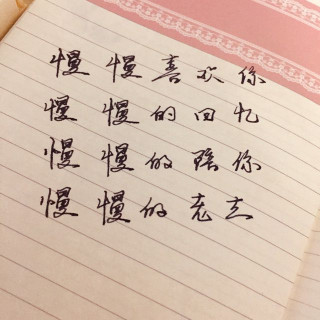 慢慢喜欢你
慢慢的回忆
慢慢的陪你
慢慢的老去